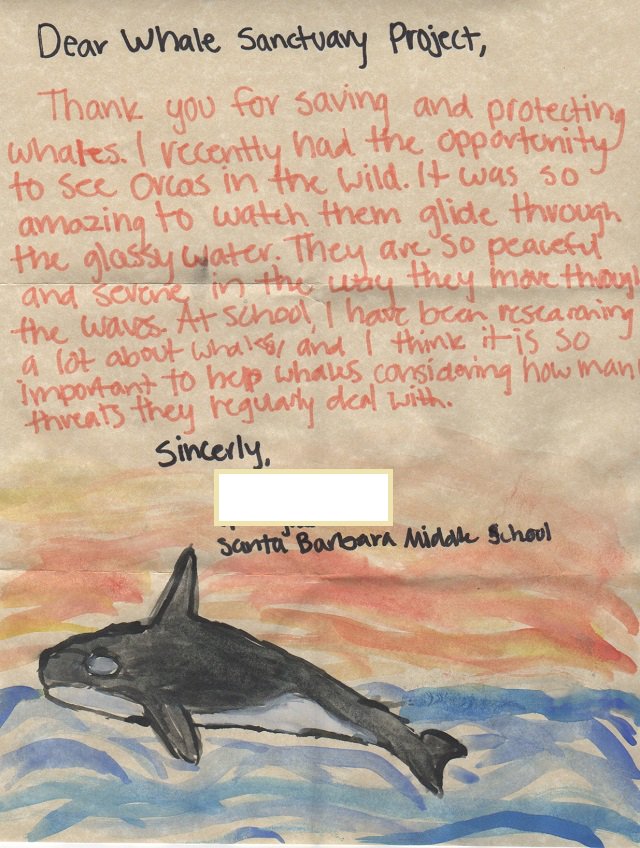 Dear Whale Sanctuary Project,
Thank you for saving and protecting
whales. I recently had the opportunity
to see Orcas in the wild. It was so
amazing to watch them glide through
the glassy water. They are so peaceful
and serene in the way they move through
the waves. At school, I have been researching
a lot about whales, and I think it is so
important to help whales considering how many
threats they reguarly deal with.
Sincerly,
Santa Barbara Middle School